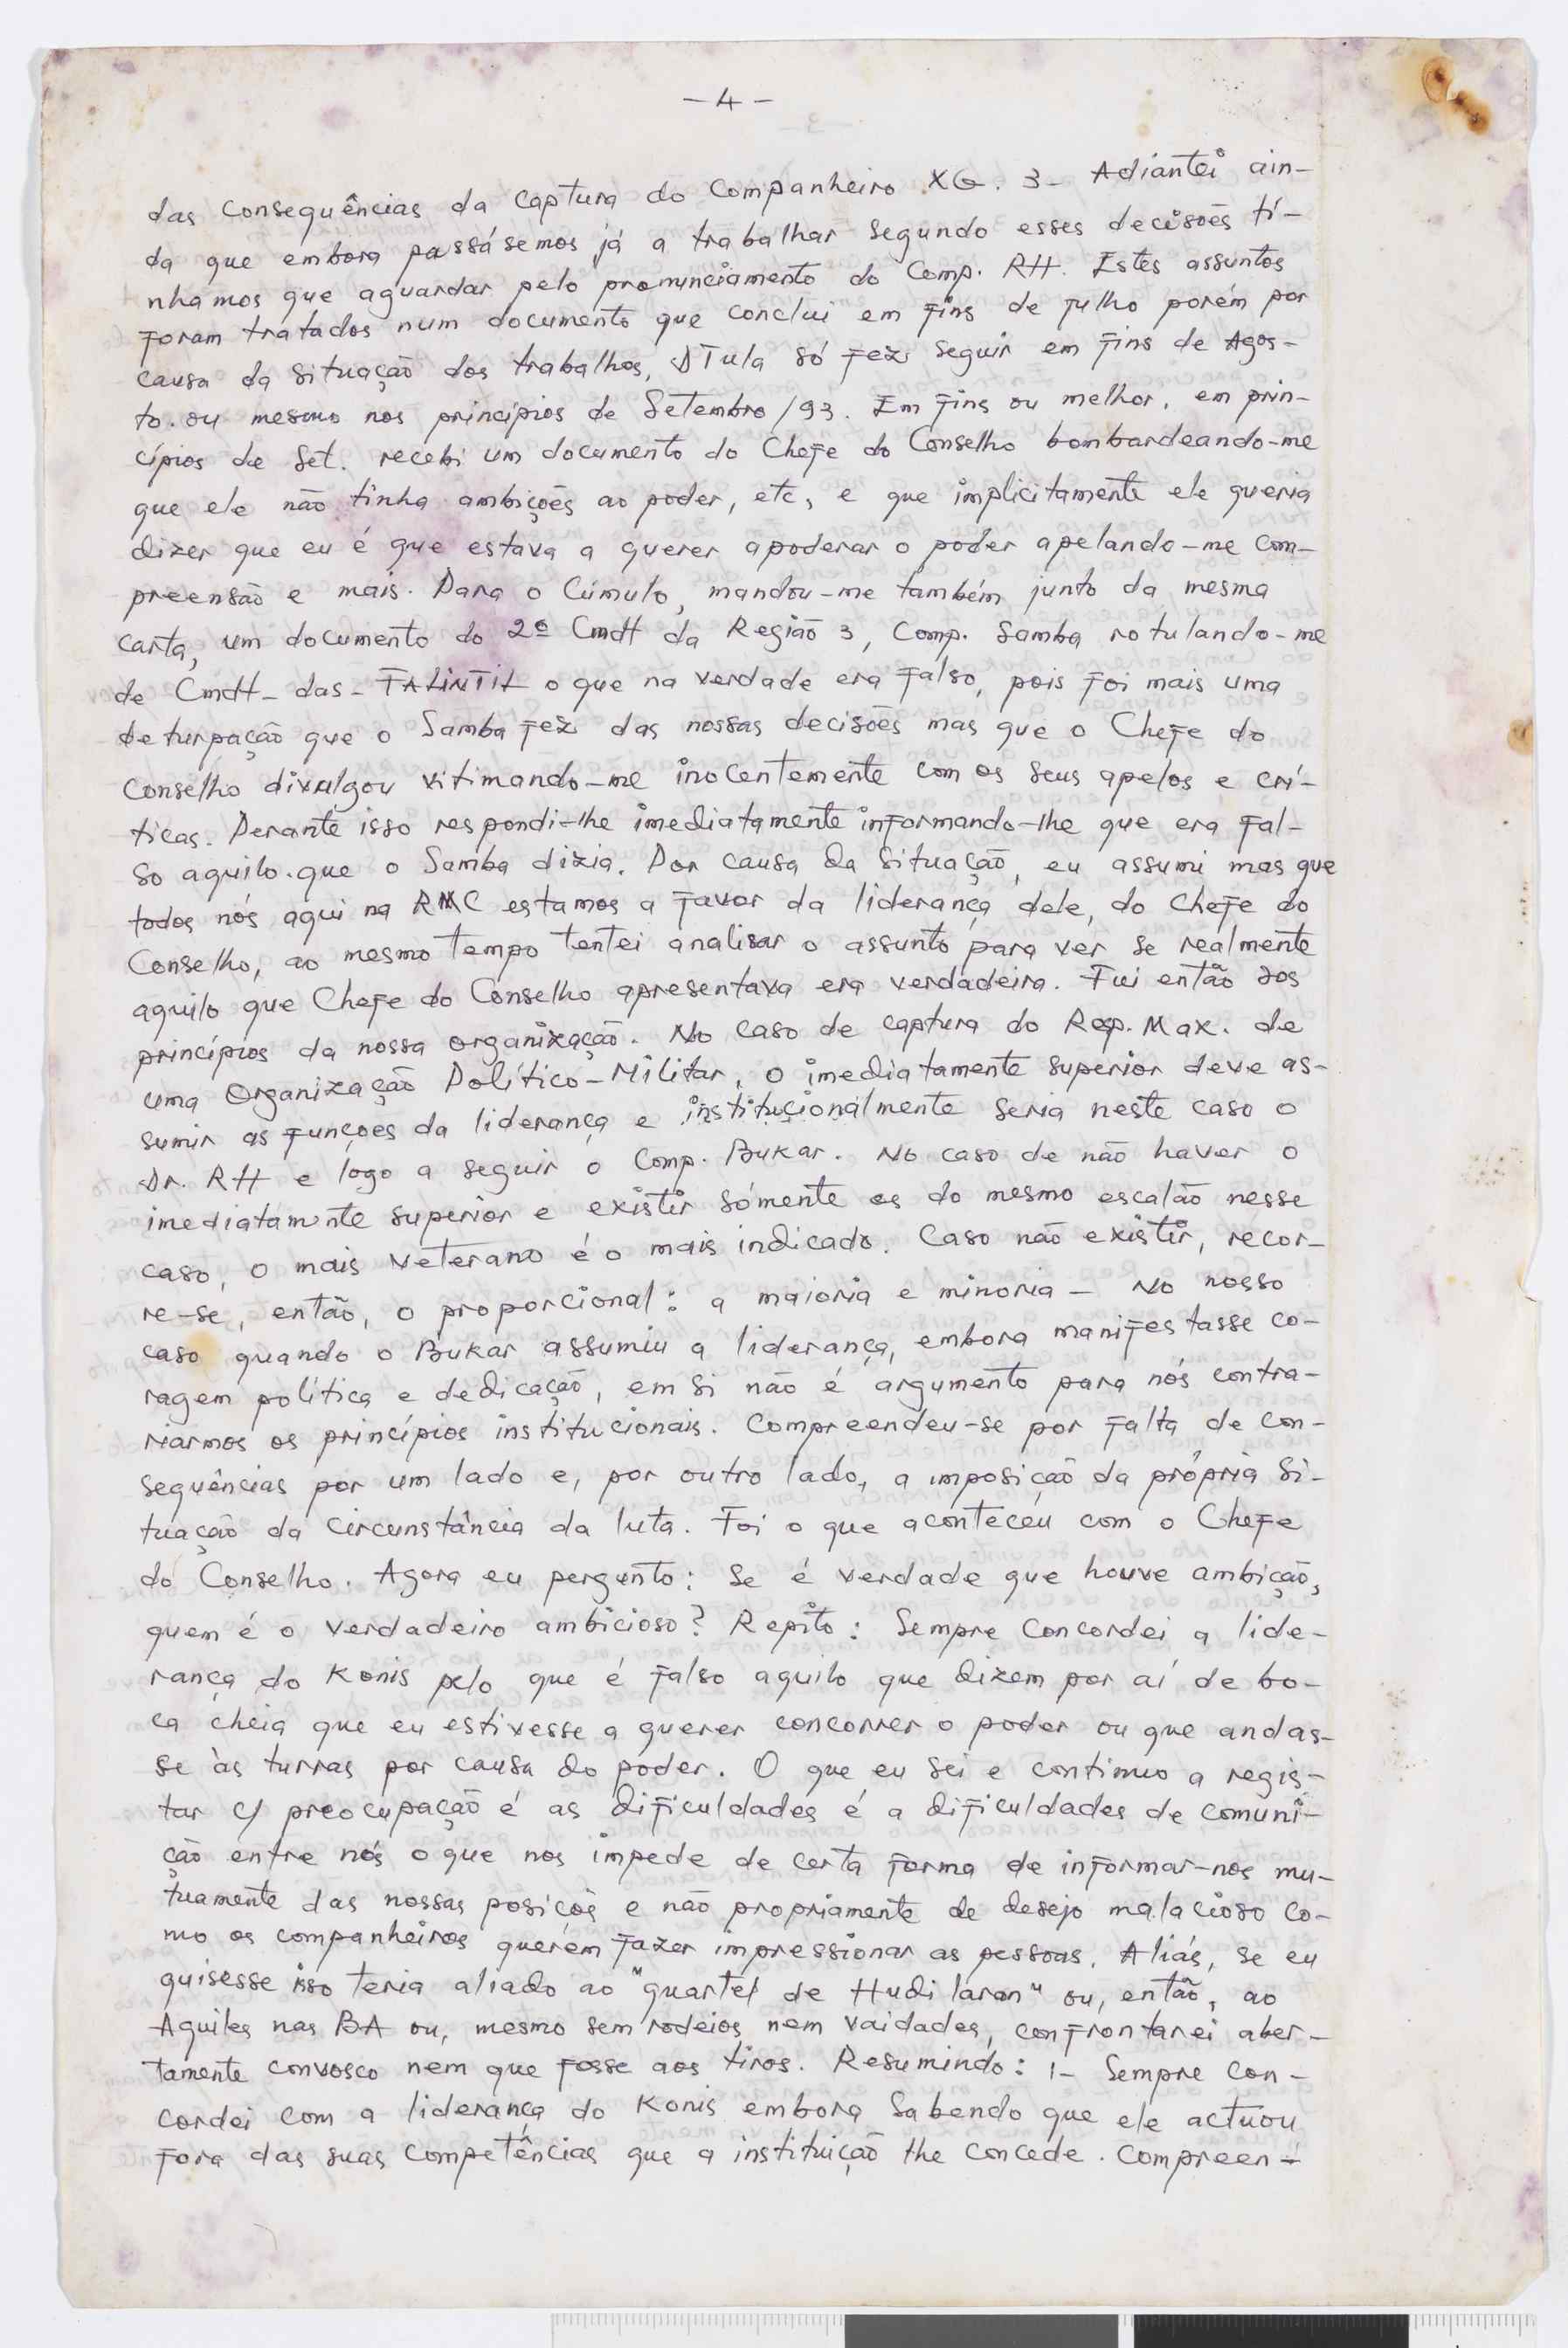 - 4 -
das consequências da captura do Companheiro XG. 3- Adiantei ain-
da que embora passásemos já a trabalhar segundo esses decisões tí-
nhamos que aguardar pelo pronunciamento do Comp. RH. Estes assuntos
foram tratados num documento que conclui em fins de julho porém por
causa da situação dos trabalhos, DTula só fez seguir em fins de Agos-
to. ou mesmo nos princípios de Setembro/93. Em fins ou melhor, em prin-
cípios de Set. recebi um documento do Chefe do Conselho bombardeando-me
que ele não tinha ambições ao poder, etc, e que implicitamente ele queria
dizer que eu é que estava a querer apoderar o poder apelando-me com-
preensão e mais. Para o cúmulo, mandou-me também junto da mesma
carta, um documento do 2º Cmdt da Região 3, Comp. Samba rotulando-me
de Cmdt- das- FALINTIL o que na verdade era falso, pois foi mais uma
deturpação que o Samba fez das nossas decisões mas que o Chefe do
Conselho divulgou vitimando-me inocentemente com os seus apelos e crí-
ticas. Perante isso respondi-lhe imediatamente informando-lhe que era fal-
so aquilo que o Samba dizia. Por causa da situação, eu assumi mas que
todos nós aqui na RMC estamos a favor da liderança dele, do Chefe do
Conselho, ao mesmo tempo tentei analisar o assunto para ver se realmente
aquilo que Chefe do Conselho apresentava era verdadeira. Fui então aos
princípios da nossa organização. No caso de captura do Rep. Max. de
uma Organização Político-Militar, o imediatamente superior deve as-
sumir as funções da liderança e institucionalmente seria neste caso o
Dr. RH e logo a seguir o Comp. Bukar. No caso de não haver o
imediatamente superior e existir sómente os do mesmo escalão nesse
caso, o mais veterano é o mais indicado. Caso não existir, recor-
re-se, então, o proporcional: a maioria e minoria - No nosso
caso quando o Bukar assumiu a liderança, embora manifestasse co-
ragem política e dedicação, em si não é argumento para nós contra-
riarmos os princípios institucionais. Compreendeu-se por falta de con-
sequências por um lado e, por outro lado, a imposição da própria si-
tuação da circunstância da luta. Foi o que aconteceu com o Chefe
do Conselho. Agora eu pergunto: Se é verdade que houve ambição,
quem é o verdadeiro ambicioso? Repito: Sempre concordei a lide-
rança do Konis pelo que é falso aquilo que dizem por aí de bo-
ca cheia que eu estivesse a querer concorrer o poder ou que andas-
se às turras por causa do poder. O que eu sei e continuo a regis-
tar c/ preocupação é as dificuldades é a dificuldades de comuni-
ção entre nós o que nos impede de certa forma de informar-nos mu-
tuamente das nossas posiçõs e não propriamente de desejo malacioso co-
mo os companheiros querém fazer impressionar as pessoas. Aliás, se eu
quisesse isso teria aliado ao "quartel de Hudi laran" ou, então, ao
Aquiles nas BA ou, mesmo sem rodeios nem vaidades, confrontarei aber-
tamente convosco nem que fosse aos tiros. Resumindo: 1- Sempre con-
cordei com a liderança do Konis embora sabendo que ele actuou
fora das suas competências que a instituição lhe concede. Compreen-